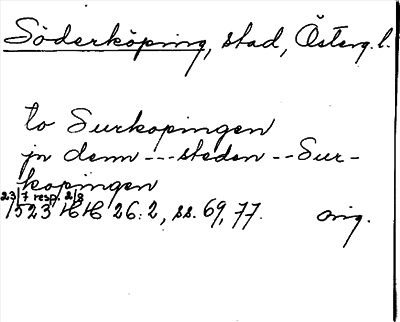 Söderköping, stad, Österg. l.
to Surkopingen
jn denn --- steden -- Sur-
kopingen
23/7 resp. 2/8
1523 HH 26:2, ss. 69, 77. orig.